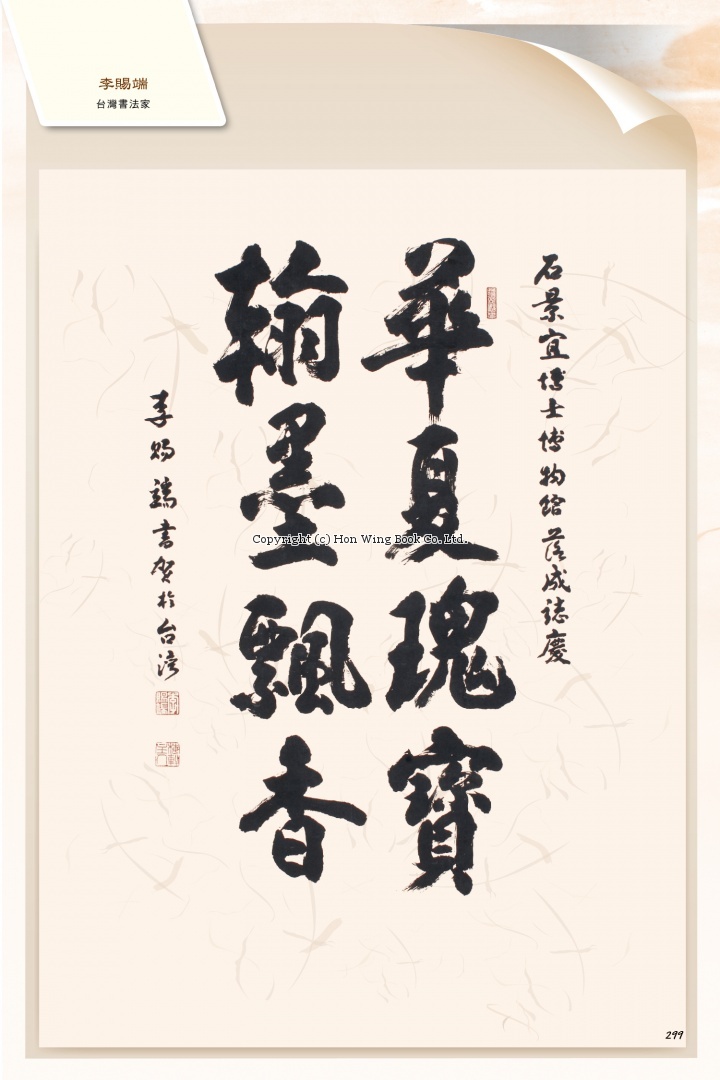 李賜端
台灣書法家
石景宜博士博物館落成誌慶
華夏瑰寶
翰墨飄香
李賜端書賀於台灣
Copyright (c) Hon Wing Book Co. Ltd.
299